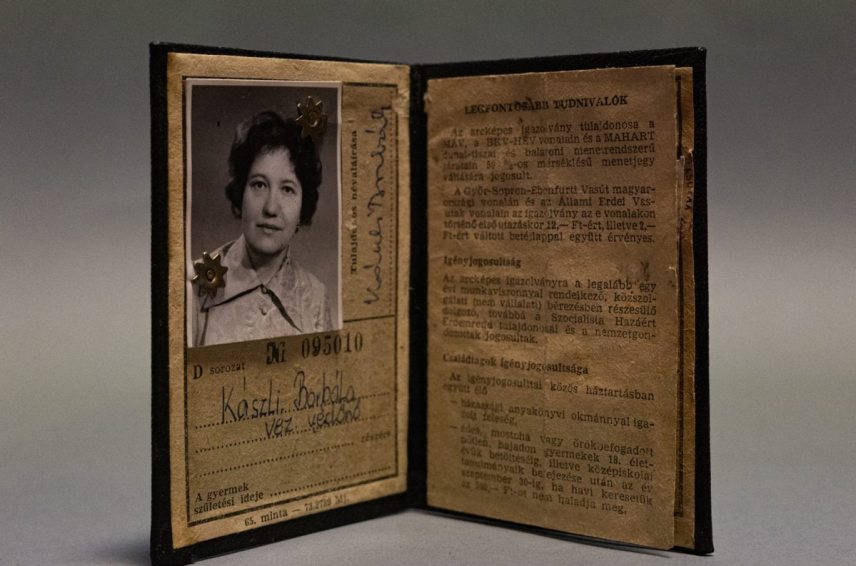 Tulajdonos névaláírása
D sorozat 095010
Kászli Borbála
vez. védőnő
részére
A gyermek
születési ideje
65. minta — 73.2786 MJ.
LEGFONTOSABB TUDNIVALÓK
Az arcképes igazolvány tulajdonosa a
MÁV, a BKV-HÉV vonalain és a MAHART
dunai-tiszai és balatoni menetrendszerű
járatain 50 %-os mérséklésű menetjegy
váltására jogosult.
A Győr-Sopron-Ebenfurti Vasút magyar-
országi vonalán és az Állami Erdei Vas-
utak vonalain az igazolvány az e vonalakon
történő első utazáskor 12,— Ft-ért, illetve 2,—
Ft-ért váltott betétlappal együtt érvényes.
Igényjogosultság
Az arcképes igazolványra a legalább egy
évi munkaviszonnyal rendelkező, közszol-
gálati (nem vállalati) bérezésben részesülő
dolgozó, továbbá a Szocialista Hazáért
Érdemrend tulajdonosai és a nemzetgon-
dozottak jogosultak.
Családtagok igényjogosultsága
Az igényjogosulttal közös háztartásban
együtt élő
— házassági anyakönyvi okmánnyal iga-
zolt feleség,
— édes, mostoha vagy örökbefogadott
nőtlen, hajadon gyermekek 18. élet-
évük betöltéséig, illetve középiskolai
tanulmányaik befejezése után az év
szeptember 30-ig, ha havi keresetük
az 500,— Ft-ot nem haladja meg,